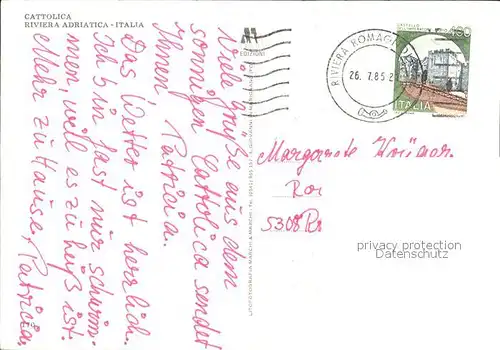 CATTOLICA
RIVIERA ADRIATICA - ITALIA
Viele Grüße aus dem
sonnigen Cattolica sendet
Ihnen Patricia.
Das Wetter ist herrlich.
Ich bin fast nur schwim-
men, weil es zu heiß ist.
Mehr zu Hause, Patricia.
EDIZIONI
RIVIERA ROMAG
26. 7.85 2
ITALIA
Margarete
5308 R
privacy protection
Datenschutz